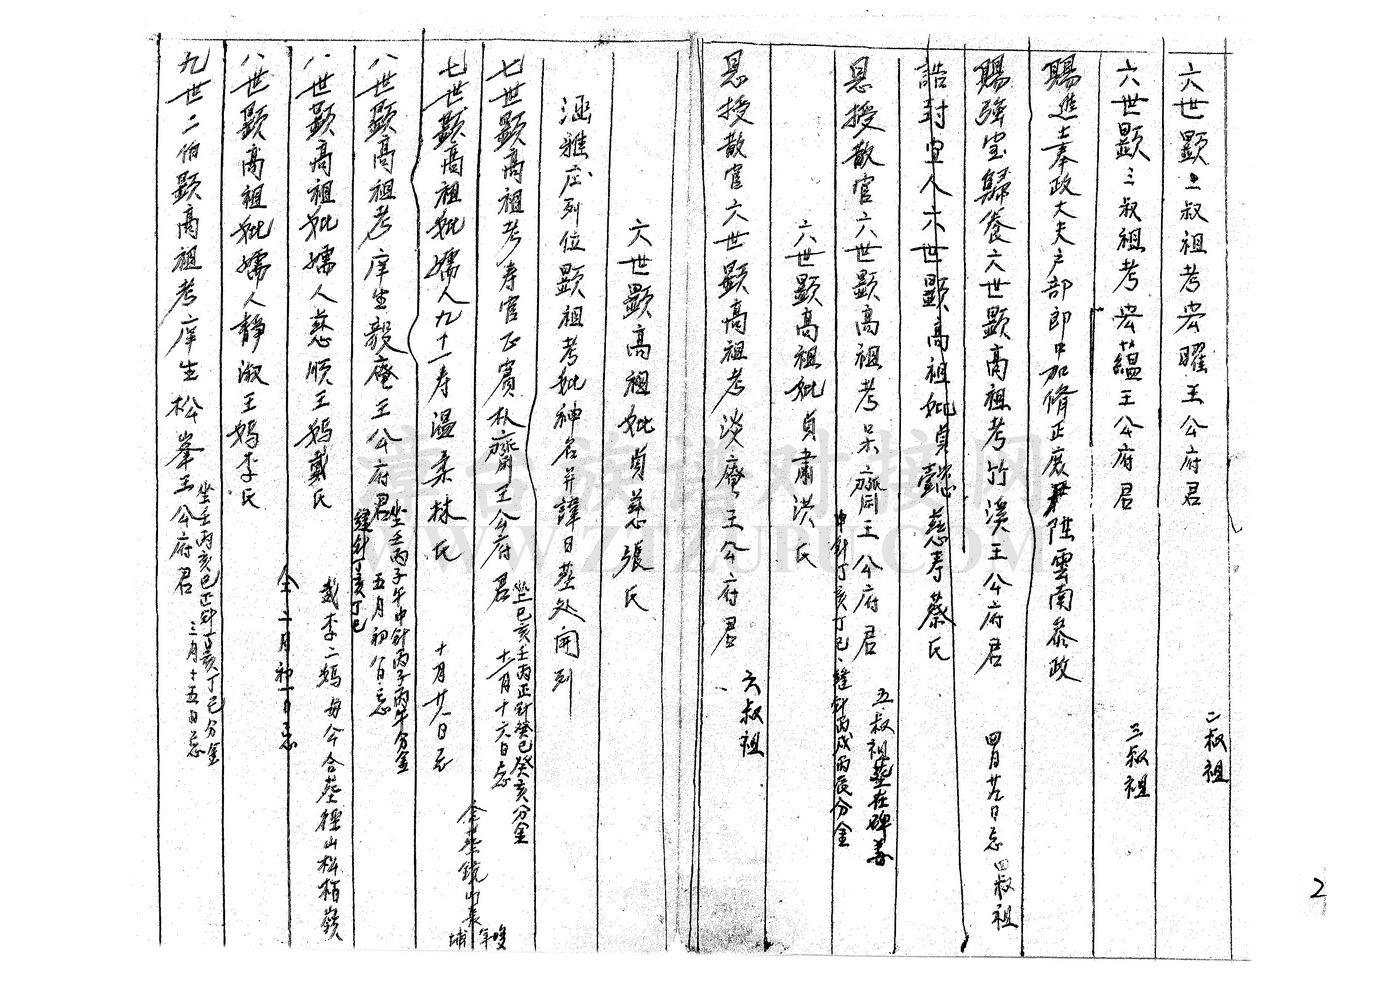 六世顯二叔祖考宏曜王公府君 二叔祖
六世顯三叔祖考宏蘊王公府君 三叔祖
賜進士奉政大夫戶部郎中加脩正庶尹陞雲南參政
賜強室歸養六世顯高祖考竹溪王公府君 四月廿九日忌 四叔祖
誥封宜人六世顯高祖妣貞懿慈壽蔡氏
恩授散官六世顯高祖考呆齋王公府君 五叔祖墓在碑
申針丁亥丁巳縫針丙戌丙辰分金
六世顯高祖妣貞肅洪氏
恩授散官六世顯高祖考淡庵王公府君 六叔祖
六世顯高祖妣貞慈張氏
涵雅庄列位顯祖考妣神名并諱日墓处開列
七世顯高祖考寿官正賓朴齋王公府君 十一月十六日忌
坐巳亥壬丙正針癸巳癸亥分金
七世顯高祖妣孺人九十一寿溫柔林氏 十月廿八日忌
合墓鏡山
八世顯高祖考庠生毅庵王公府君 五月初八日忌
坐壬丙子午中針丙子丙午分金
縫針丁亥丁巳
八世顯高祖妣孺人慈順王媽戴氏
戴李二媽母今合墓徑山松栢嶺
八世顯高祖妣孺人靜淑王媽李氏 仝二月初一日忌
九世二伯顯高祖考庠生松峯王公府君 三月十五日忌
坐壬丙亥巳正針丁亥丁巳分金
2
章古族谱对接网
WWW.ZTZUPU.COM